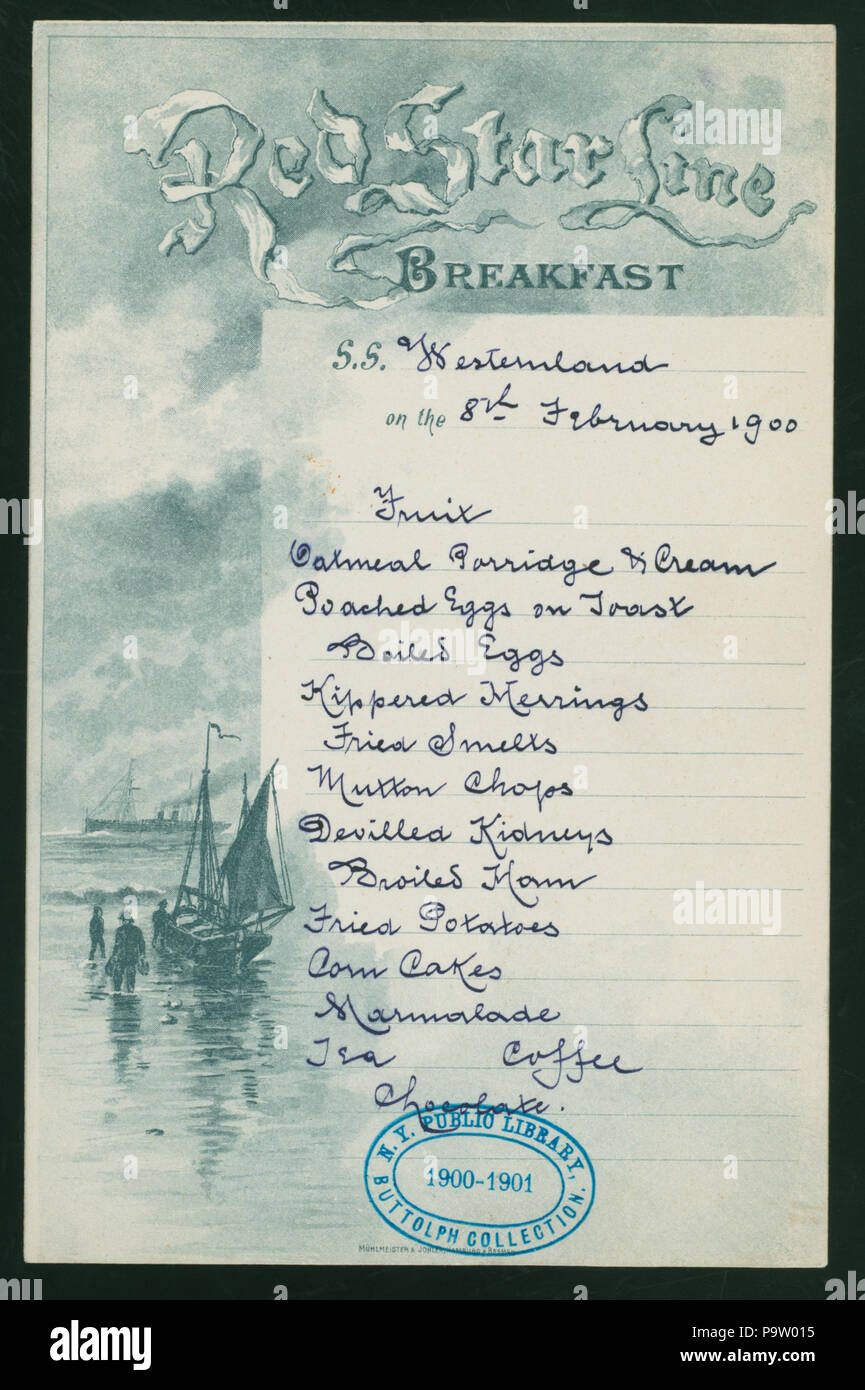 Red Star Line
BREAKFAST
S.S. Westernland
on the 8th February 1900
Fruit
Oatmeal Porridge & Cream
Poached Eggs on Toast
Boiled Eggs
Kippered Herrings
Fried Smelts
Mutton Chops
Devilled Kidneys
Broiled Ham
Fried Potatoes
Corn Cakes
Marmalade
Tea Coffee
Chocolate.
N.Y. PUBLIC LIBRARY,
1900-1901
BUTTOLPH COLLECTION.
MÜHLMEISTER & JOHLER, HAMBURG & BREMEN
alamy
Image ID: P9W015
www.alamy.com